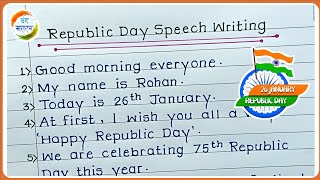 Republic Day Speech Writing
1) Good morning everyone.
2) My name is Rohan.
3) Today is 26th January.
4) At first, I wish you all a
'Happy Republic Day'.
5) We are celebrating 75th Republic
Day this year.
26 JANUARY
REPUBLIC DAY